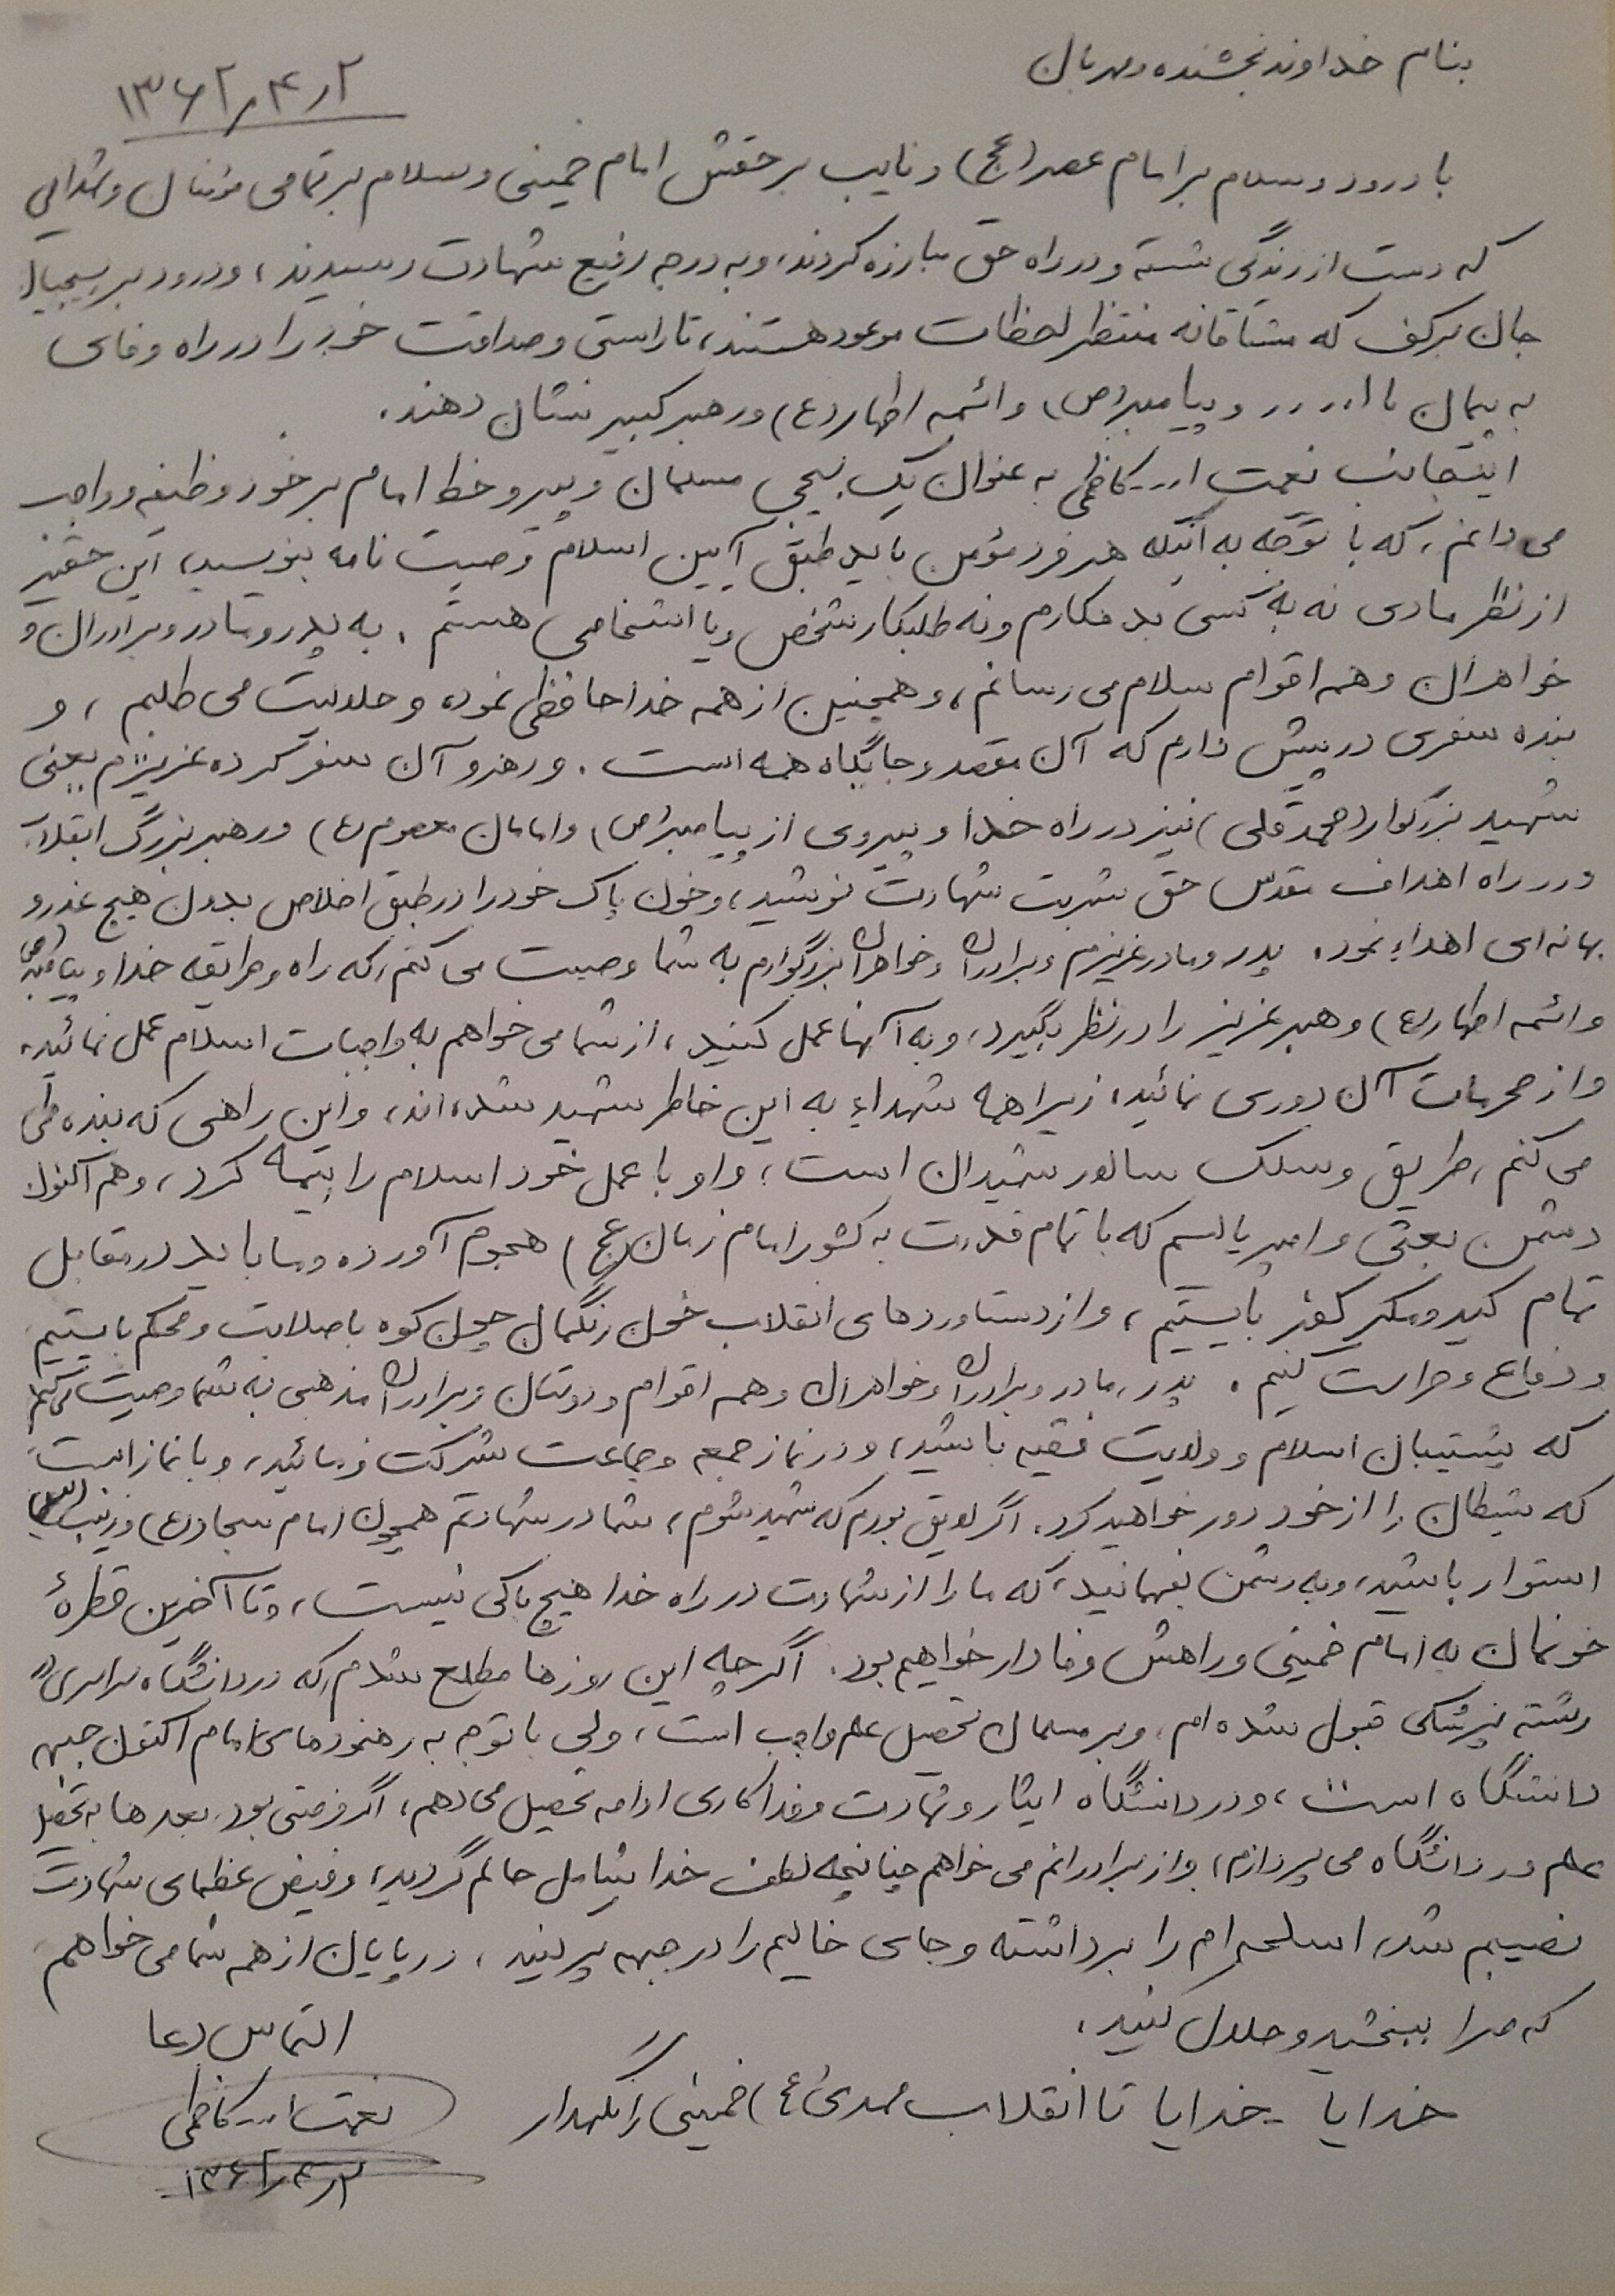 بنام خداوند بخشنده و مهربان
۱۳۶۲ر۴ر۲
با درود و سلام بر امام عصر (عج) و نایب بر حقش امام خمینی و سلام بر تمامی مؤمنان و شهدایی
که دست از زندگی شسته و در راه حق مبارزه کردند، و به درجه رفیع شهادت رسیدند، و درود بر بسیجیان
جان برکف که مشتاقانه منتظر لحظات موعود هستند، تا راستی و صداقت خود را در راه وفای
به پیمان با ا... و پیامبر (ص) و ائمه اطهار (ع) و رهبر کبیر نشان دهند.
اینجانب نعمت ا... کاظمی به عنوان یک بسیجی مسلمان و پیرو خط امام بر خود وظیفه و واجب
می دانم، که با توجه به اینکه هر فرد مؤمن باید طبق آیین اسلام وصیت نامه بنویسد، این حقیر
از نظر مادی نه به کسی بدهکارم و نه طلبکار شخص و یا اشخاصی هستم. به پدر و مادر و برادران و
خواهران و همه اقوام سلام می رسانم، و همچنین از همه خداحافظی نموده و حلالیت می طلبم، و
بنده سفری در پیش دارم که آن مقصد و جایگاه همه است. و رهرو آن سفر کرده عزیزم یعنی
شهید بزرگوار (محمدقلی) نیز در راه خدا و پیروی از پیامبر (ص) و امامان معصوم (ع) و رهبر بزرگ انقلاب
و در راه اهداف مقدس حق شربت شهادت نوشید، و خون پاک خود را در طبق اخلاص بدون هیچ عذر و
بهانه ای اهداء نمود. پدر و مادر عزیزم و برادران و خواهران بزرگوارم به شما وصیت می کنم، که راه و طریقه خدا و پیامبر (ص)
و ائمه اطهار (ع) و هبر عزیز را در نظر بگیرد، و به آنها عمل کنید، از شما می خواهم به واجبات اسلام عمل نمائید،
و از محرمات آن دوری نمائید، زیرا همه شهداء به این خاطر شهید شده اند، و این راهی که بنده طی
می کنم، طریق و سلک سالار شهیدان است، و او با عمل خود اسلام را بیمه کرد، و هم اکنون
دشمن بعثی و امپریالیسم که با تمام قدرت به کشور امام زمان (عج) هجوم آورده و ما باید در مقابل
تمام کید و مکر کفر بایستیم، و از دستاوردهای انقلاب خون رنگمان چون کوه با صلابت و محکم بایستیم
و دفاع و حراست کنیم. پدر، مادر و برادران و خواهران و همه اقوام و دوستان و برادران مذهبی به شما وصیت می کنم
که پشتیبان اسلام و ولایت فقیه باشید، و در نماز جمعه و جماعت شرکت فرمائید، و با نماز است
که شیطان را از خود دور خواهید کرد. اگر لایق بودم که شهید شوم، شما در شهادتم همچون امام سجاد (ع) و زینب (س)
استوار باشید، و به دشمن بفهمانید، که ما را از شهادت در راه خدا هیچ باکی نیست، و تا آخرین قطرهٔ
خونمان به امام خمینی و راهش وفادار خواهیم بود. اگر چه این روزها مطلع شدم، که در دانشگاه سراسری
رشته پزشکی قبول شده ام، و بر مسلمان تحصیل علم واجب است، ولی با توجه به رهنودهای امام اکنون جبهه
دانشگاه است، و در دانشگاه ایثار و شهادت و فداکاری ادامه تحصیل می دهم، اگر فرصتی بود بعدها به تحصیل
علم در دانشگاه می پردازم، و از برادرانم می خواهم چنانچه لطف خدا شامل حالم گردید، و فیض عظمای شهادت
نصیبم شد، اسلحه ام را برداشته و جای خالیم را در جبهه پر کنید، در پایان از همه شما می خواهم
که مرا ببخشید و حلال کنید.
التماس دعا
خدایا خدایا تا انقلاب مهدی (ع) خمینی را نگهدار
نعمت ا... کاظمی
۱۳۶۲ر۴ر۲